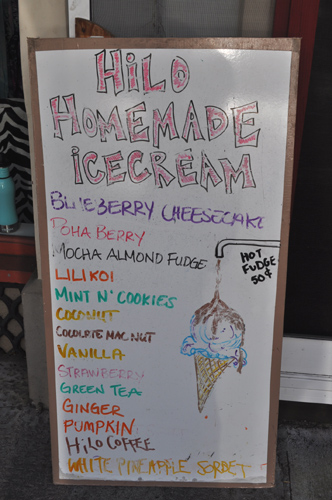 HiLO
HOMEMADE
iCECREAM
BLUEBERRY CHEESECAKE
POHA BERRY
MOCHA ALMOND FUDGE
LILIKOI
MINT N' COOKIES
COCONUT
CHOCOLATE MAC NUT
VANILLA
STRAWBERRY
GREEN TEA
GINGER
PUMPKIN
HiLO COFFEE
WHITE PINEAPPLE SORBET
HOT
FUDGE
50¢